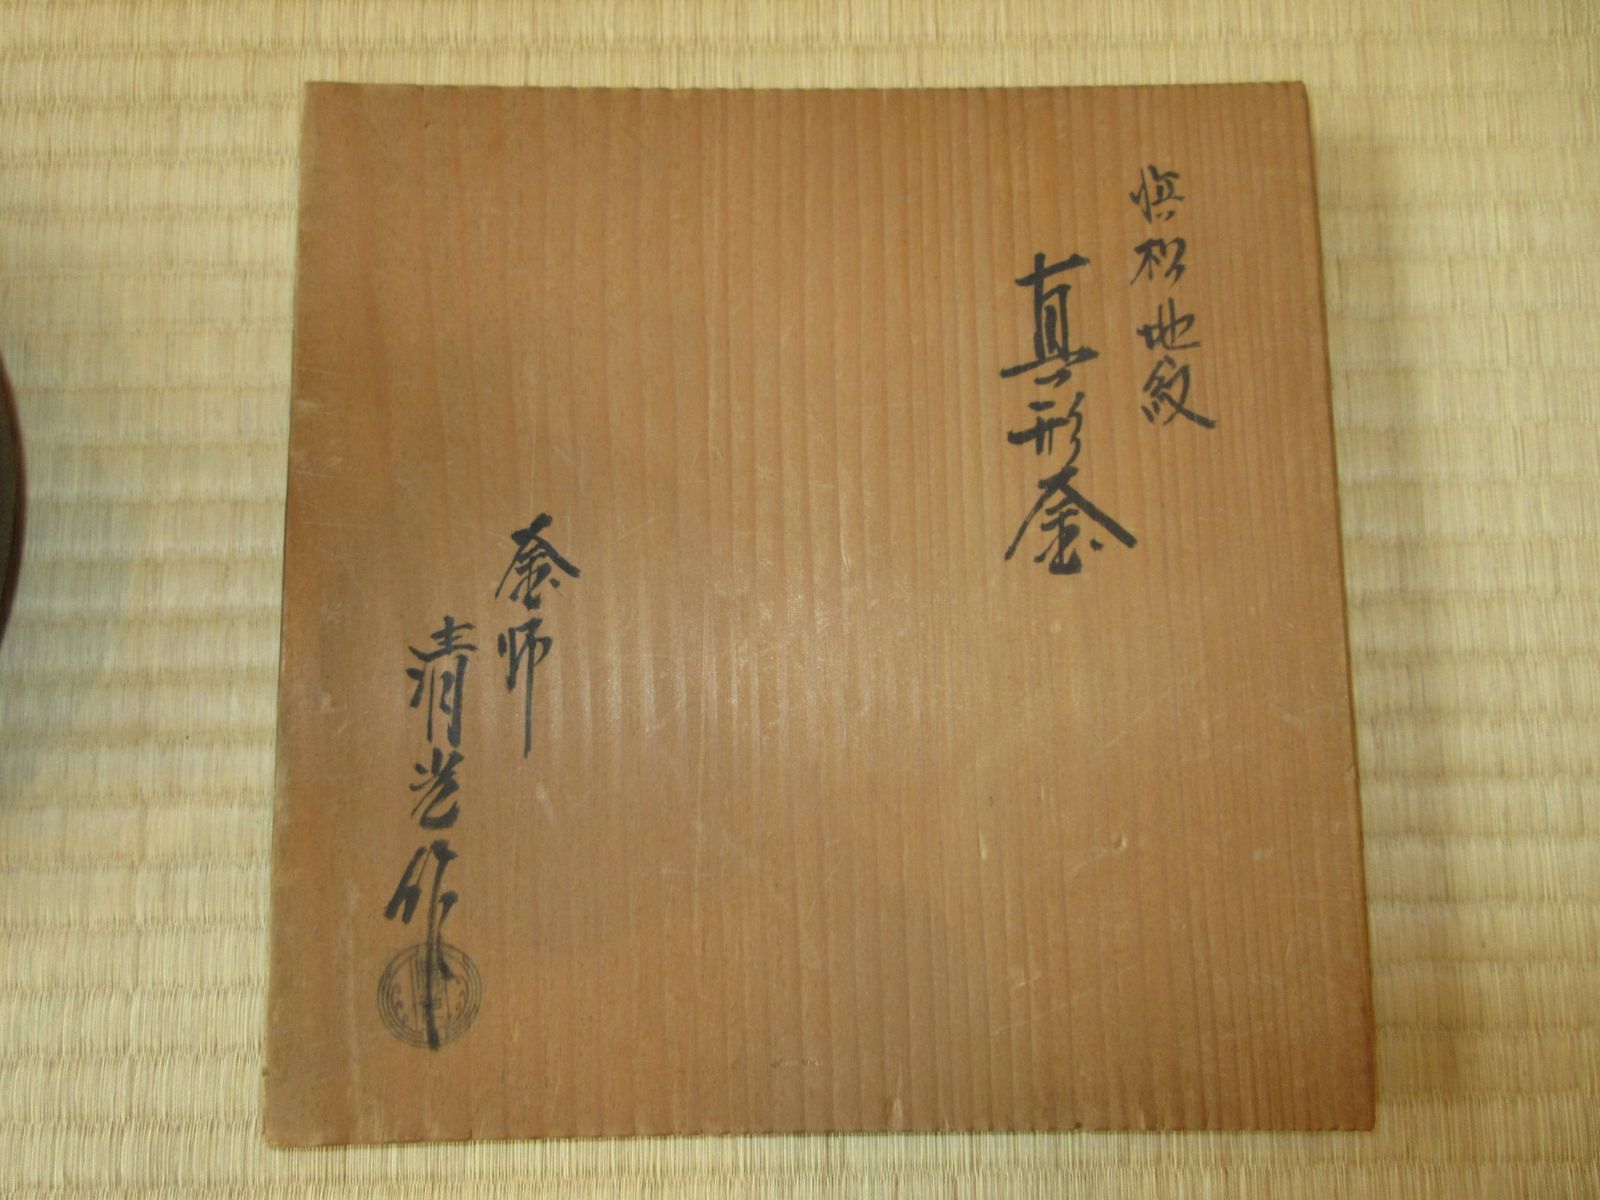 浜松地紋
真形釜
釜師
清光作